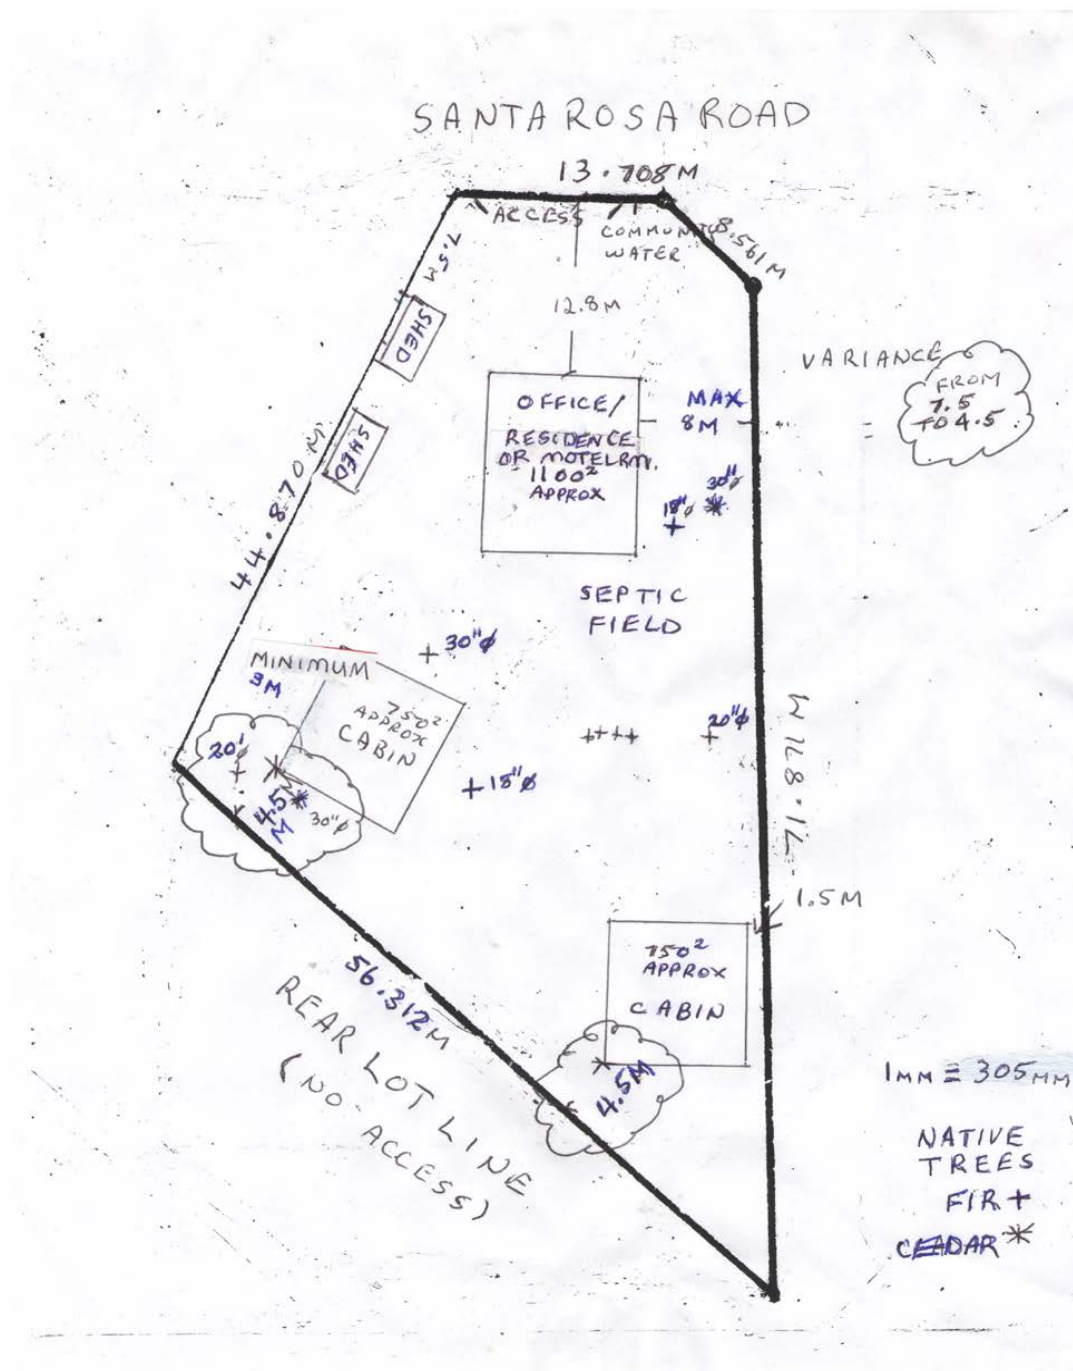 SANTA ROSA ROAD
13.708M
ACCESS
COMMUNITY
WATER
8.561M
7.5M
SHED
SHED
12.8M
VARIANCE
FROM
7.5
TO 4.5
OFFICE/
RESIDENCE
OR MOTEL RM.
1100²
APPROX
MAX
8M
30"ø
18"ø
44.870 M.
SEPTIC
FIELD
30"ø
MINIMUM
3M
750²
APPROX
CABIN
20'ø
4.5
M
30"ø
18"ø
++++
20"ø
1.5M
750²
APPROX
CABIN
4.5M
56.312M
REAR LOT LINE
(NO ACCESS)
1MM = 305MM
NATIVE
TREES
FIR +
CEDAR *